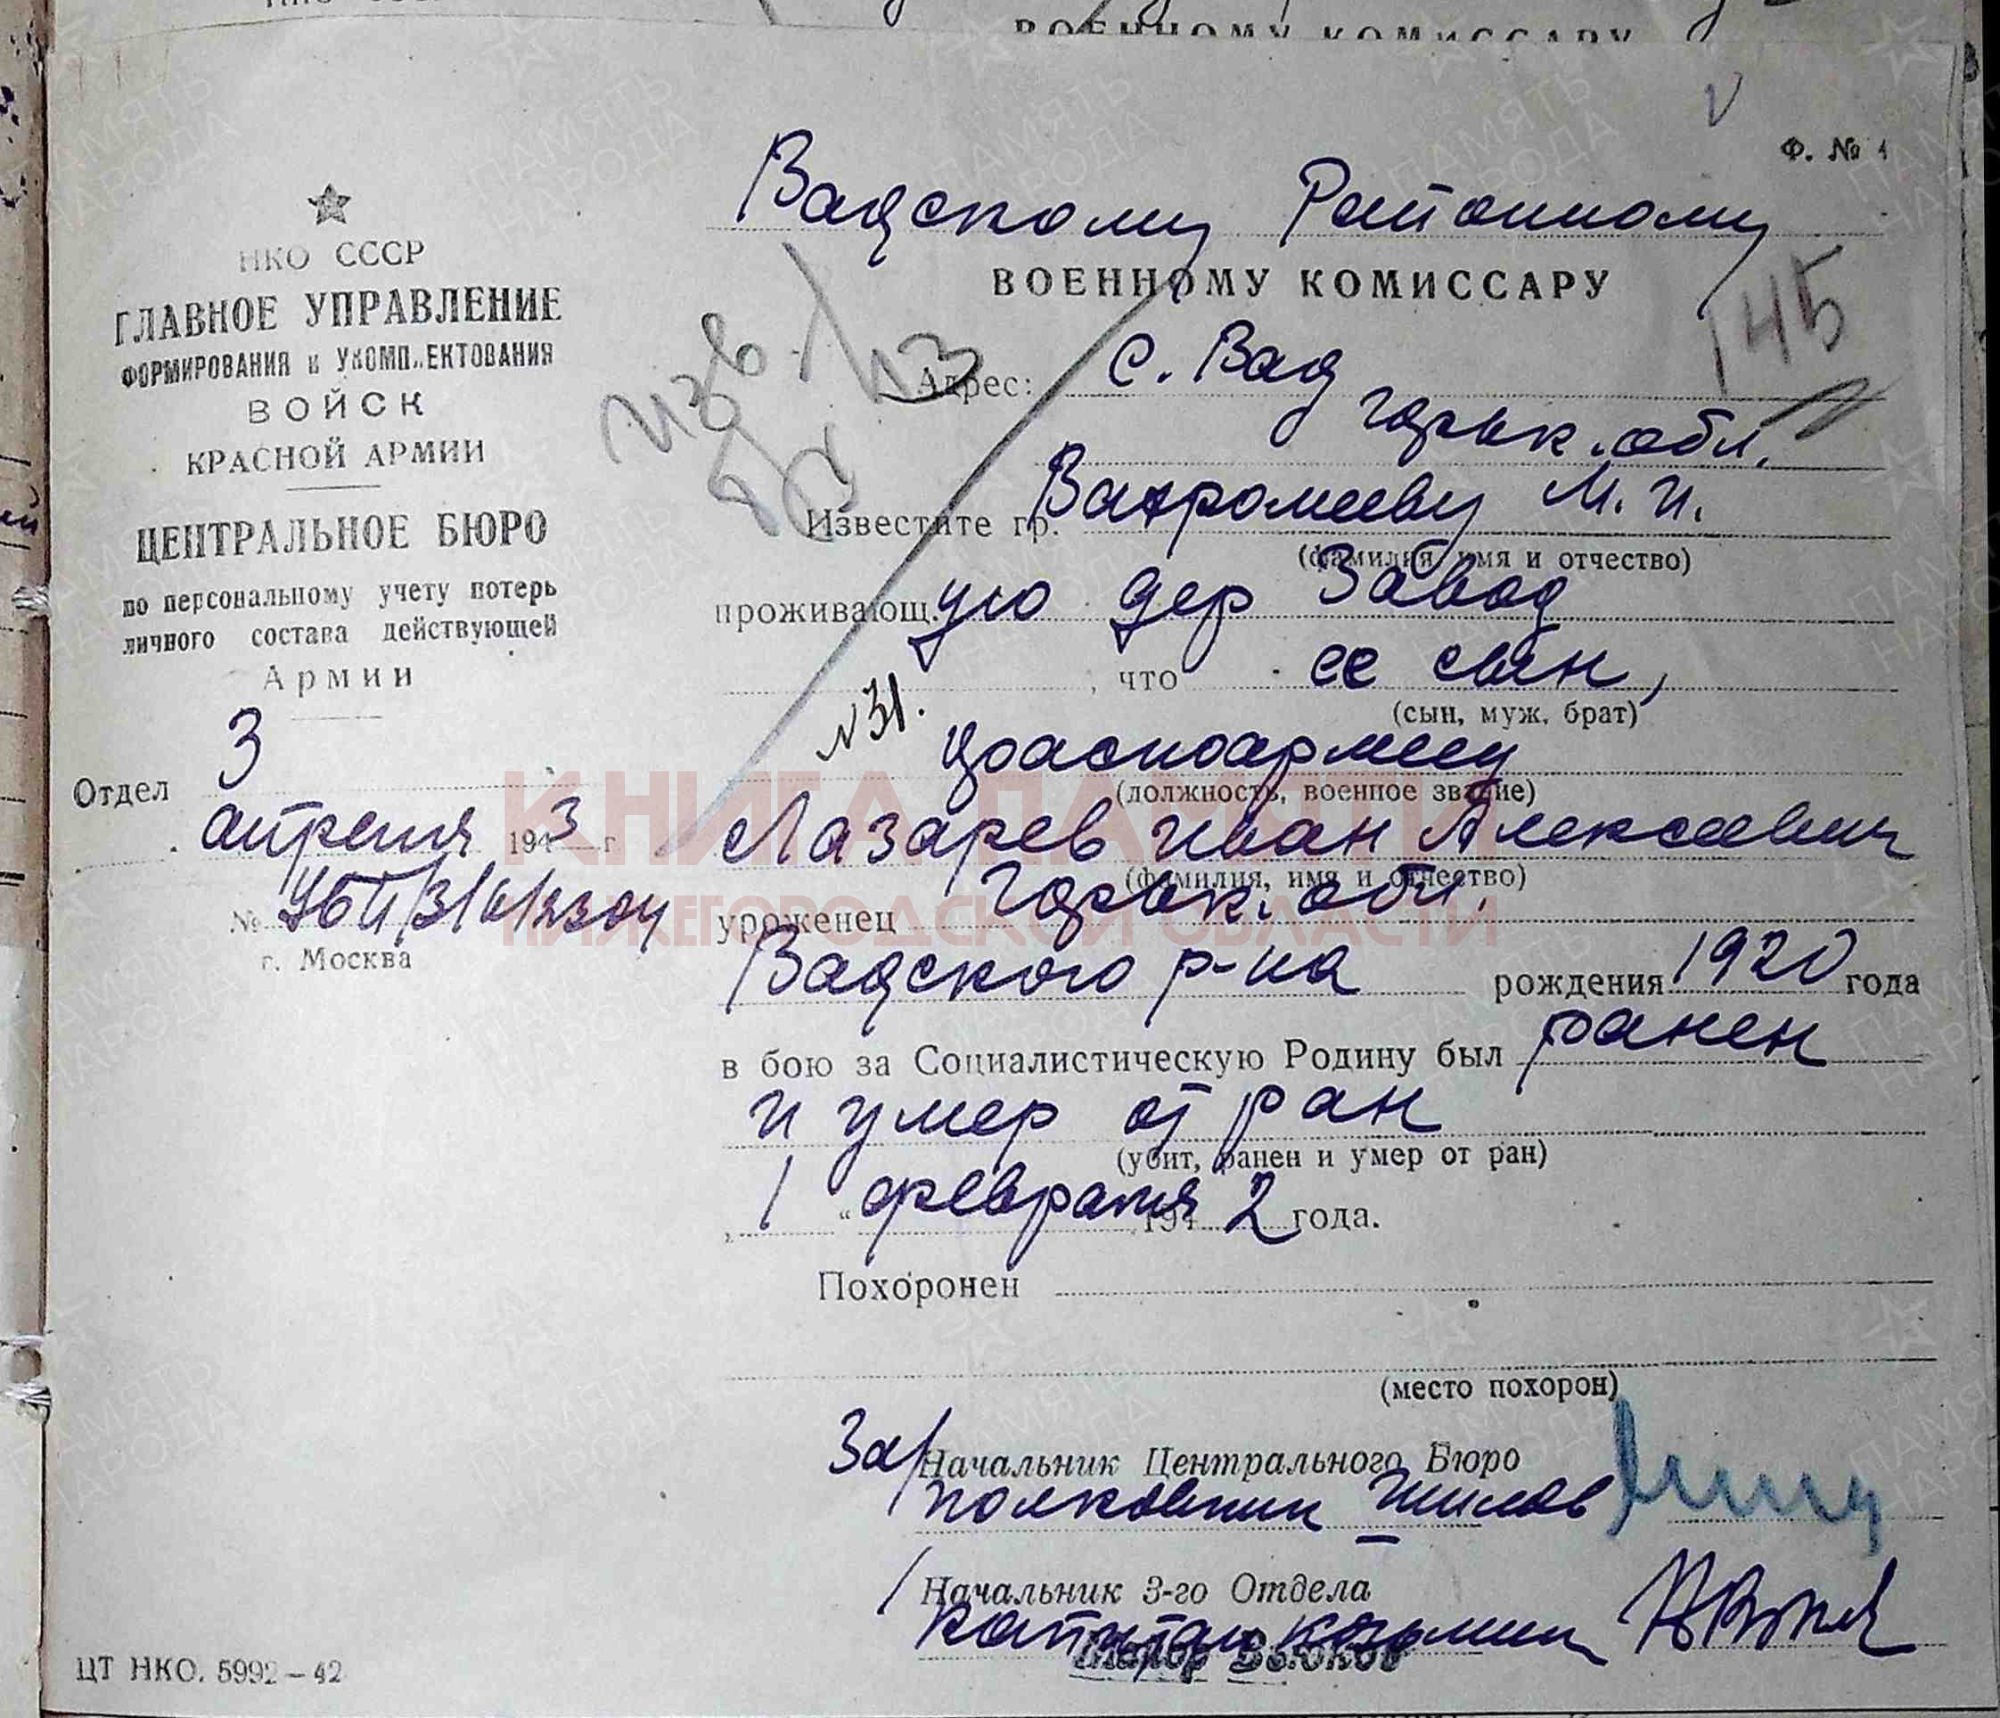 ВОЕННОМУ КОМИССАРУ
Ф. № 1
НКО СССР
ГЛАВНОЕ УПРАВЛЕНИЕ
ФОРМИРОВАНИЯ и УКОМПЛЕКТОВАНИЯ
ВОЙСК
КРАСНОЙ АРМИИ
ЦЕНТРАЛЬНОЕ БЮРО
по персональному учету потерь
личного состава действующей
Армии
Отдел 3
апреля 1943 г.
№
г. Москва
Вадскому Районному
ВОЕННОМУ КОМИССАРУ
145
Адрес: с. Вад
Горьк. обл.
Известите гр. Вахромееву М. И.
(фамилия, имя и отчество)
проживающ.ую дер Завод
, что ее сын,
(сын, муж, брат)
№31.
красноармеец
(должность, военное звание)
Лазарев Иван Алексеевич
(фамилия, имя и отчество)
уроженец Горьк. обл.
Вадского р-на рождения 1920 года
в бою за Социалистическую Родину был ранен
и умер от ран
(убит, ранен и умер от ран)
„ 1 “ февраля 1942 года.
Похоронен
(место похорон)
За/ Начальник Центрального Бюро
полковник Шилов
/ Начальник 3-го Отдела
капитан Кузьмин
ЦТ НКО. 5992—42
КНИГА ПАМЯТИ
НИЖЕГОРОДСКОЙ ОБЛАСТИ
ПАМЯТЬ НАРОДА